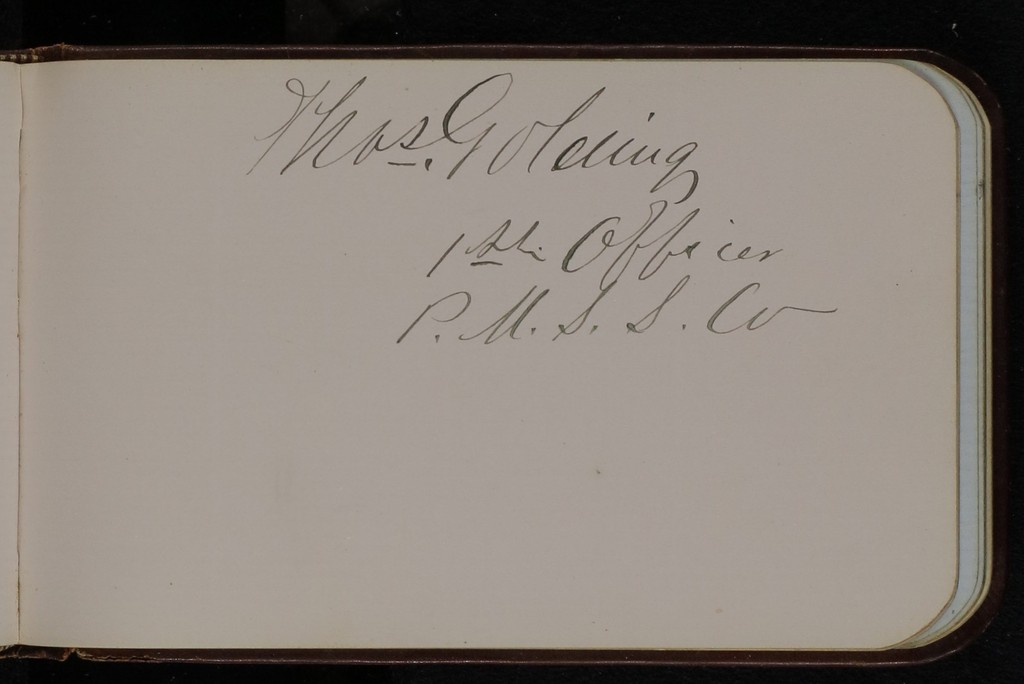 Thos. Golding
1st. Officer
P. M. S. S. Co